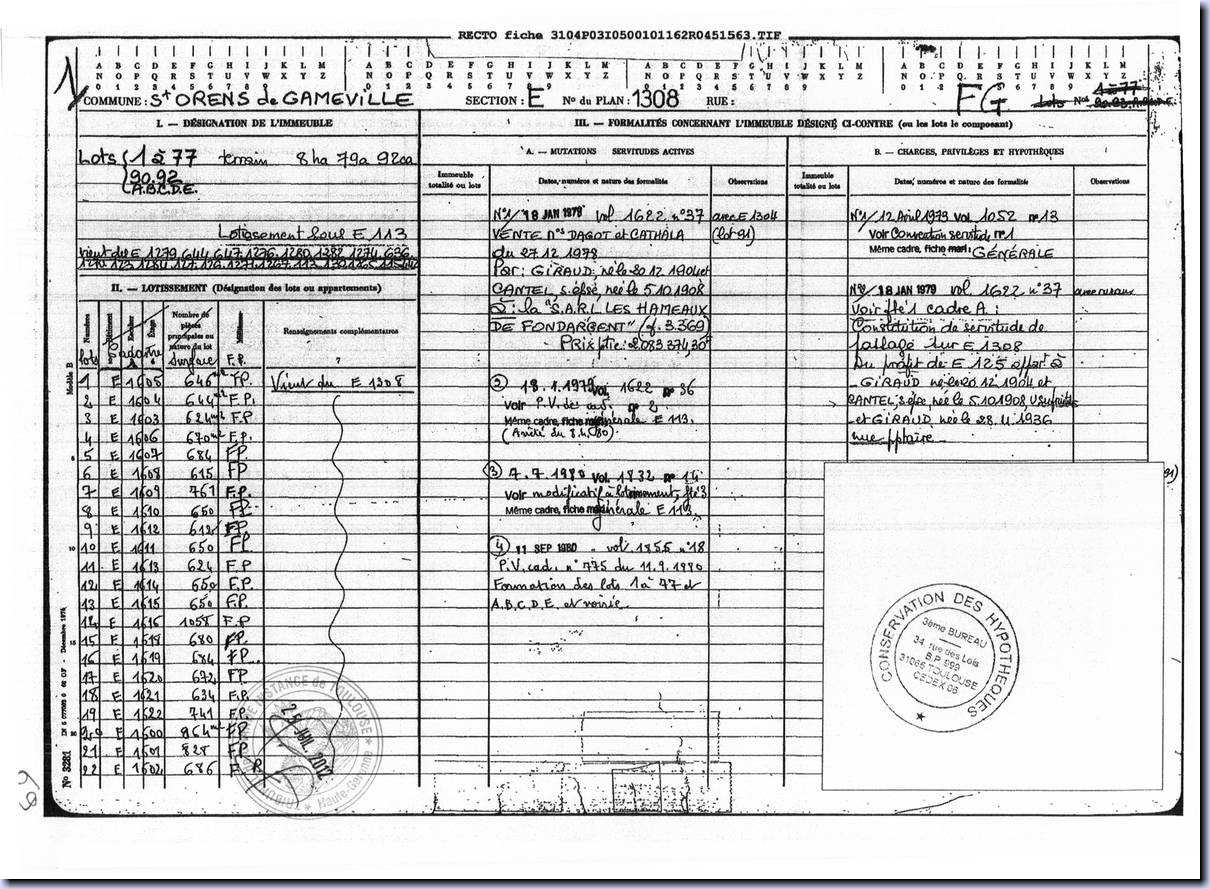 RECTO fiche 3104P03I0500101162R0451563.TIF
A B C D E F G H I J K L M
N O P Q R S T U V W X Y Z
0 1 2 3 4 5 6 7 8 9
COMMUNE : St ORENS de GAMEVILLE SECTION : E No du PLAN : 1308 RUE : FG
Lots Nos 1 à 77
I. — DÉSIGNATION DE L'IMMEUBLE
Lots 1 à 77 terrain 8 ha 79a 92ca
90.92
A.B.C.D.E.
Lotissement sous E 113
vient de E 1279, 644, 647, 1276, 1280, 1282, 1274, 636,
II. — LOTISSEMENT (Désignation des lots ou appartements)
Numéros Bâtiment Escalier Étage Nombre de pièces principales ou nature du lot Millièmes Renseignements complémentaires
lots cadastre Surface F.P. ?
1 E 1605 646 m2 F.P. Vient du E 1308
2 E 1604 644 m2 F.P.
3 E 1603 624 m2 F.P
4 E 1606 670 m2 F.P.
5 E 1607 684 F.P.
6 E 1608 615 FP
7 E 1609 761 F.P.
8 E 1610 650 F.P.
9 E 1612 612 F.P.
10 E 1611 650 F.P.
11 E 1613 624 F.P
12 E 1614 650 F.P.
13 E 1615 650 F.P.
14 E 1616 1058 F.P
15 E 1618 680 F.P.
16 E 1619 684 F.P.
17 E 1620 672 FP
18 E 1621 634 F.P.
19 E 1622 741 F.P.
20 E 1600 964 m2 F.P.
21 E 1601 828 F.P.
22 E 1602 686 F.P.
III. — FORMALITÉS CONCERNANT L'IMMEUBLE DÉSIGNÉ CI-CONTRE (ou les lots le composant)
A. — MUTATIONS SERVITUDES ACTIVES
Immeuble totalité ou lots Dates, numéros et nature des formalités Observations
N°1/ 18 JAN 1979 vol 1622 n°37 avec E 1304
VENTE Nrs DAGOT et CATHALA (lot 91)
du 27.12.1978
Par : GIRAUD, né le 20.12.1904 et
CANTEL s. épse, née le 5.10.1908
à : la "S.A.R.L LES HAMEAUX
DE FONDARGENT" (f. 3.369)
Prix ptie : 2083 374,30 F
2 18.1.1979 Vol. 1622 N° 36
Voir P.V. de cad. N° 2
Même cadre, fiche générale E 113.
(Arrêté du 8.4.80).
3 7.7.1980 Vol. 1832 N° 14
Voir modificatif à lotissement, fté 3
Même cadre, fiche générale E 113.
4 11 SEP 1980 - vol. 1855 n°18
P.V. cad. n° 775 du 11.9.1980
Formation des lots 1 à 77 et
A.B.C.D.E. et voirie.
B. — CHARGES, PRIVILÈGES ET HYPOTHÈQUES
Immeuble totalité ou lots Dates, numéros et nature des formalités Observations
N°1/ 12 Avril 1973 Vol. 1052 N° 13
Voir Convention servitude N° 1
Même cadre, fiche GÉNÉRALE
N°2/ 18 JAN 1979 vol. 1622 n°37
Voir fté 1 cadre A :
Constitution de servitude de
passage sur E 1308
Au profit de E 125 appart. à
- GIRAUD né le 20.12.1904 et,
CANTEL s. épse, née le 5.10.1908 Usufruitiers
- et GIRAUD née le 28.11.1936
nue pptaire
91)
CONSERVATION DES HYPOTHEQUES
3ème BUREAU
34, rue des Lois
B.P 999
31066 TOULOUSE
CEDEX 06
INSTANCE de TOULOUSE
25 JUIL. 2012
Haute-Garonne
Modèle B
N° 3281
Décembre 1974